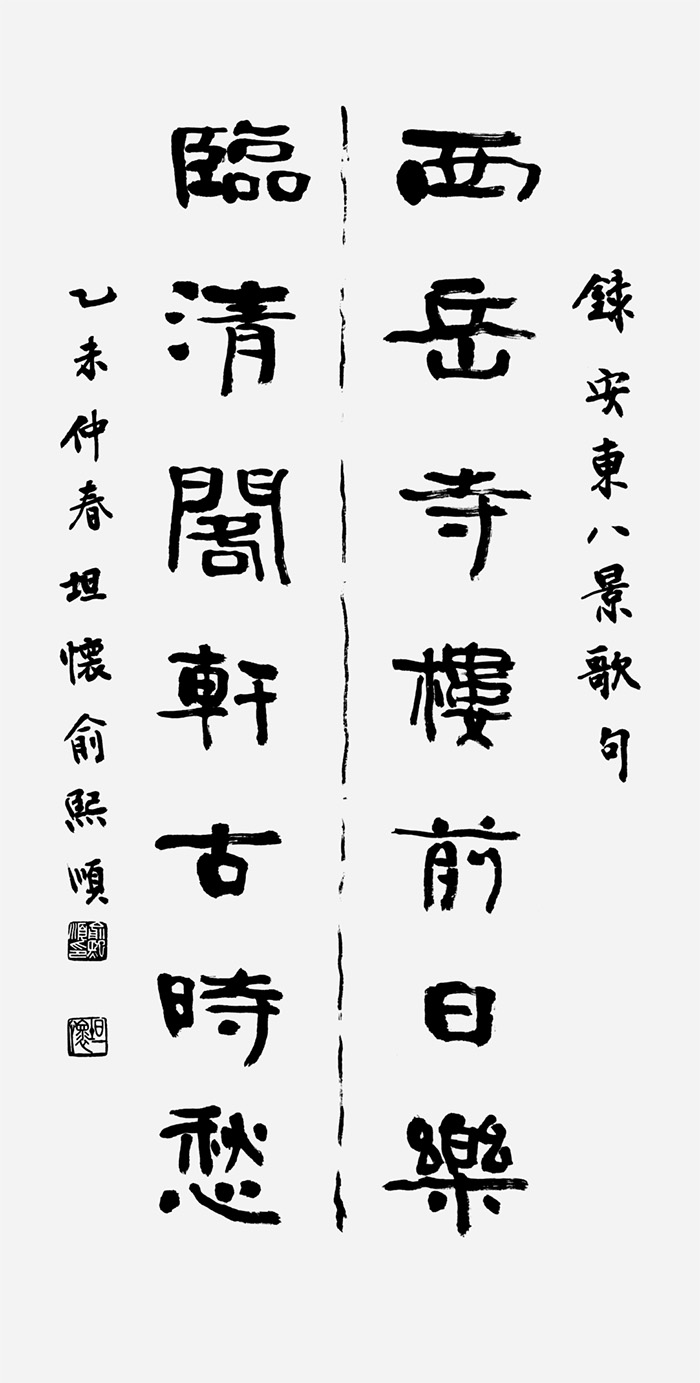 錄安東八景歌句
西岳寺樓前日樂
臨清閣軒古時愁
乙未仲春坦懷俞熙順
俞熙順印
坦懷